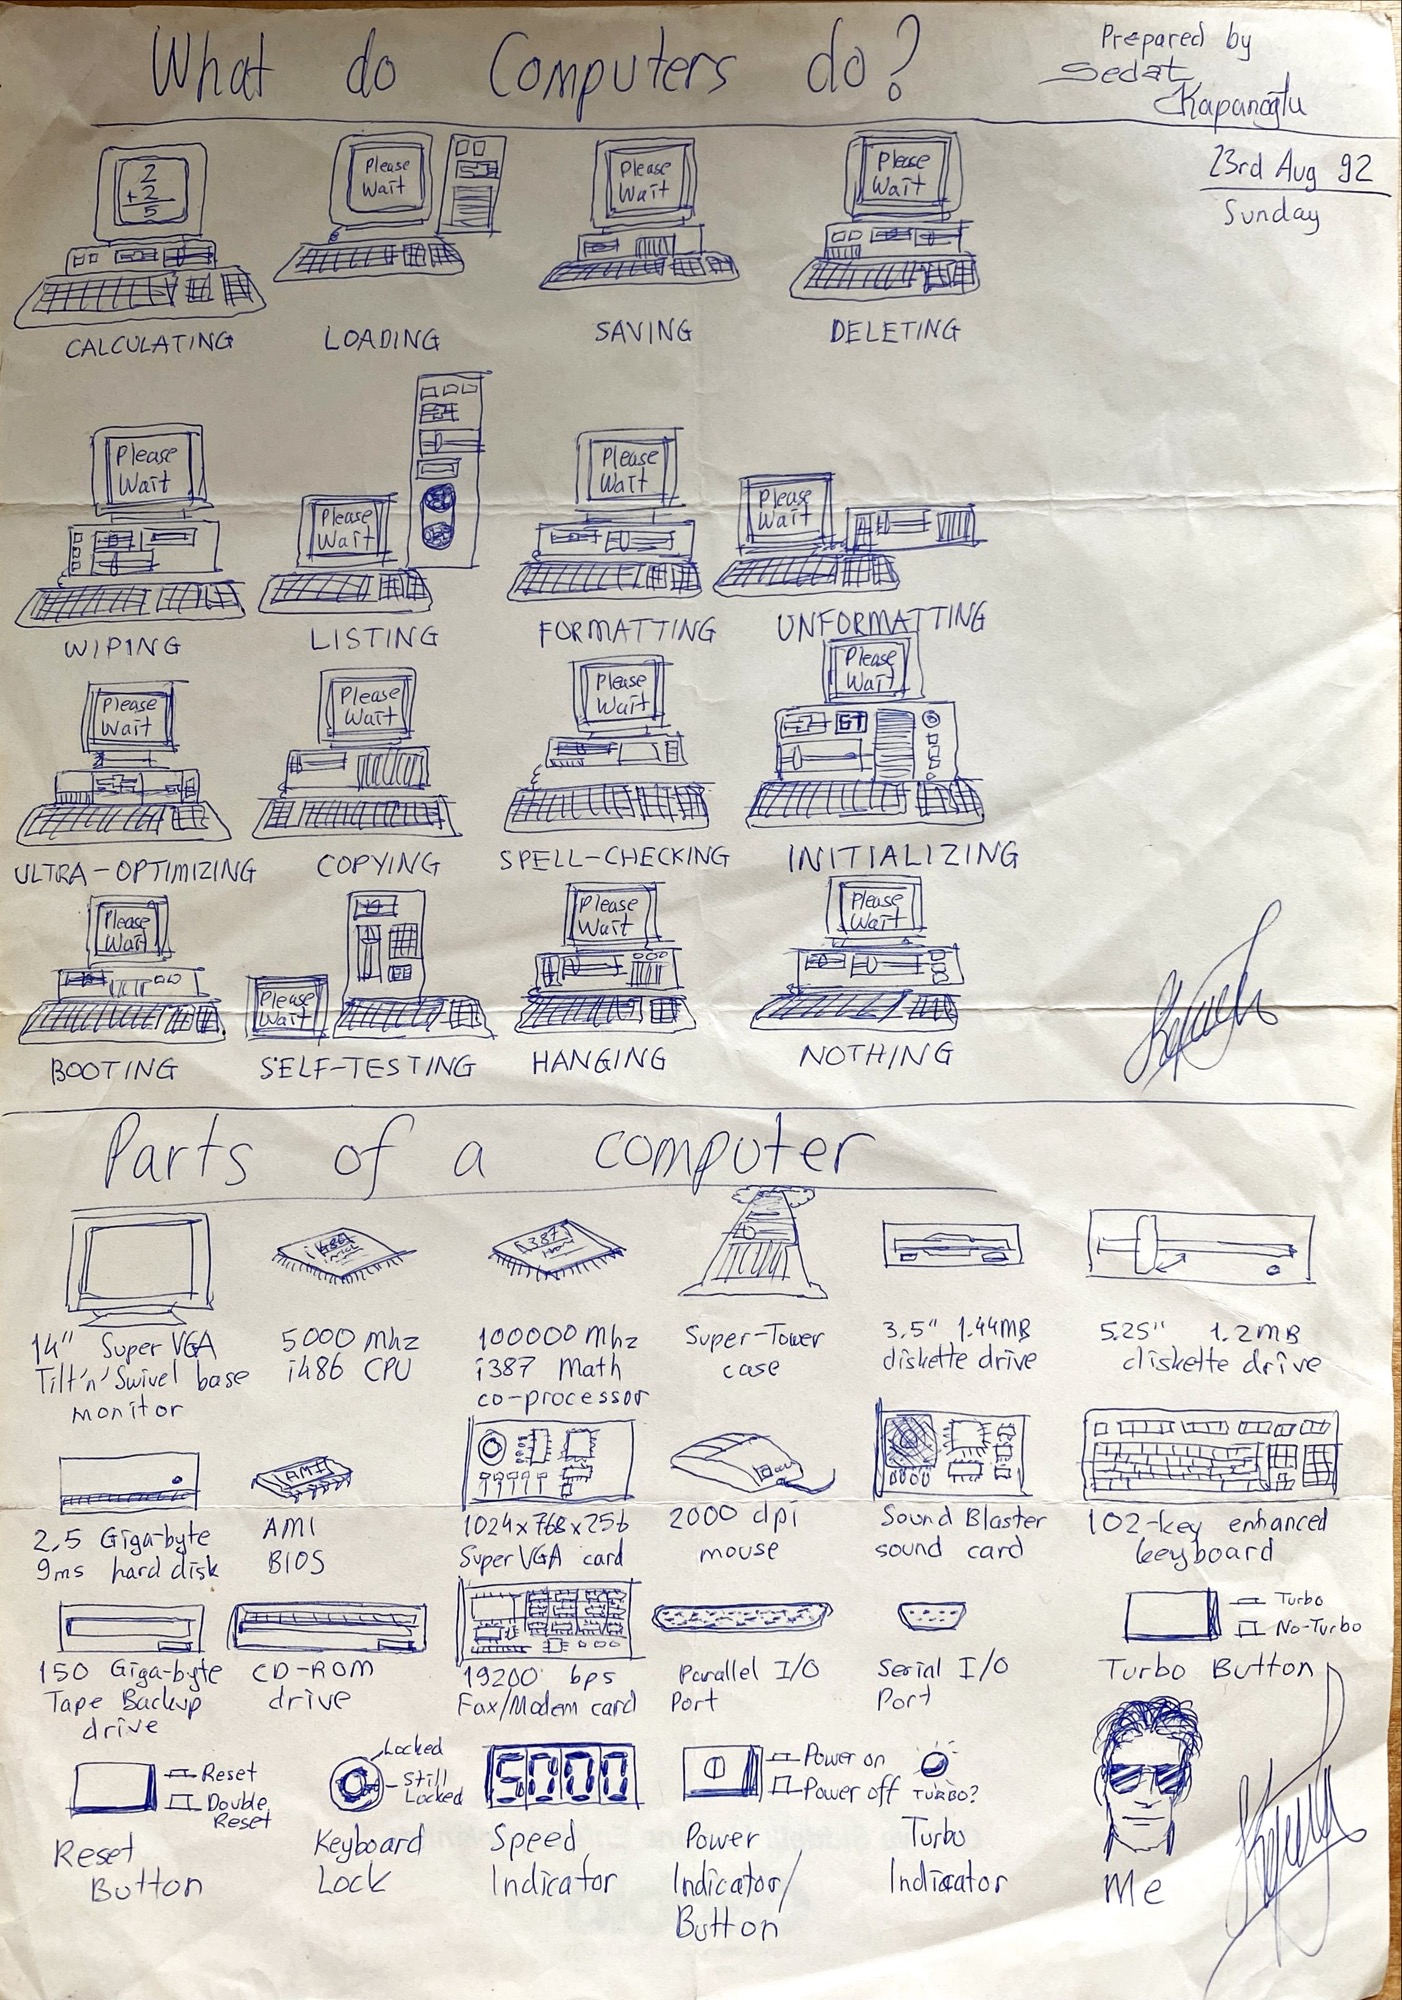 What do Computers do?
Prepared by
Sedat
Kapanoğlu
23rd Aug 92
Sunday
2
+2
5
Please
Wait
Please
Wait
Please
Wait
CALCULATING
LOADING
SAVING
DELETING
Please
Wait
Please
Wait
Please
Wait
Please
Wait
WIPING
LISTING
FORMATTING
UNFORMATTING
Please
Wait
Please
Wait
Please
Wait
Please
Wait
ULTRA-OPTIMIZING
COPYING
SPELL-CHECKING
INITIALIZING
Please
Wait
Please
Wait
Please
Wait
Please
Wait
BOOTING
SELF-TESTING
HANGING
NOTHING
Parts of a computer
i486
i387
14" Super VGA
Tilt'n'Swivel base
monitor
5000 Mhz
i486 CPU
100000 Mhz
i387 Math
co-processor
Super-Tower
case
3.5" 1.44MB
diskette drive
5.25" 1.2MB
diskette drive
AMI
2.5 Giga-byte
9ms hard disk
AMI
BIOS
1024x768x256
Super VGA card
2000 dpi
mouse
Sound Blaster
sound card
102-key enhanced
keyboard
Turbo
No-Turbo
150 Giga-byte
Tape Backup
drive
CD-ROM
drive
19200 bps
Fax/Modem card
Parallel I/O
Port
Serial I/O
Port
Turbo Button
Reset
Double
Reset
Locked
Still
Locked
5000
Power on
Power off
TURBO?
Reset
Button
Keyboard
Lock
Speed
Indicator
Power
Indicator/
Button
Turbo
Indicator
Me